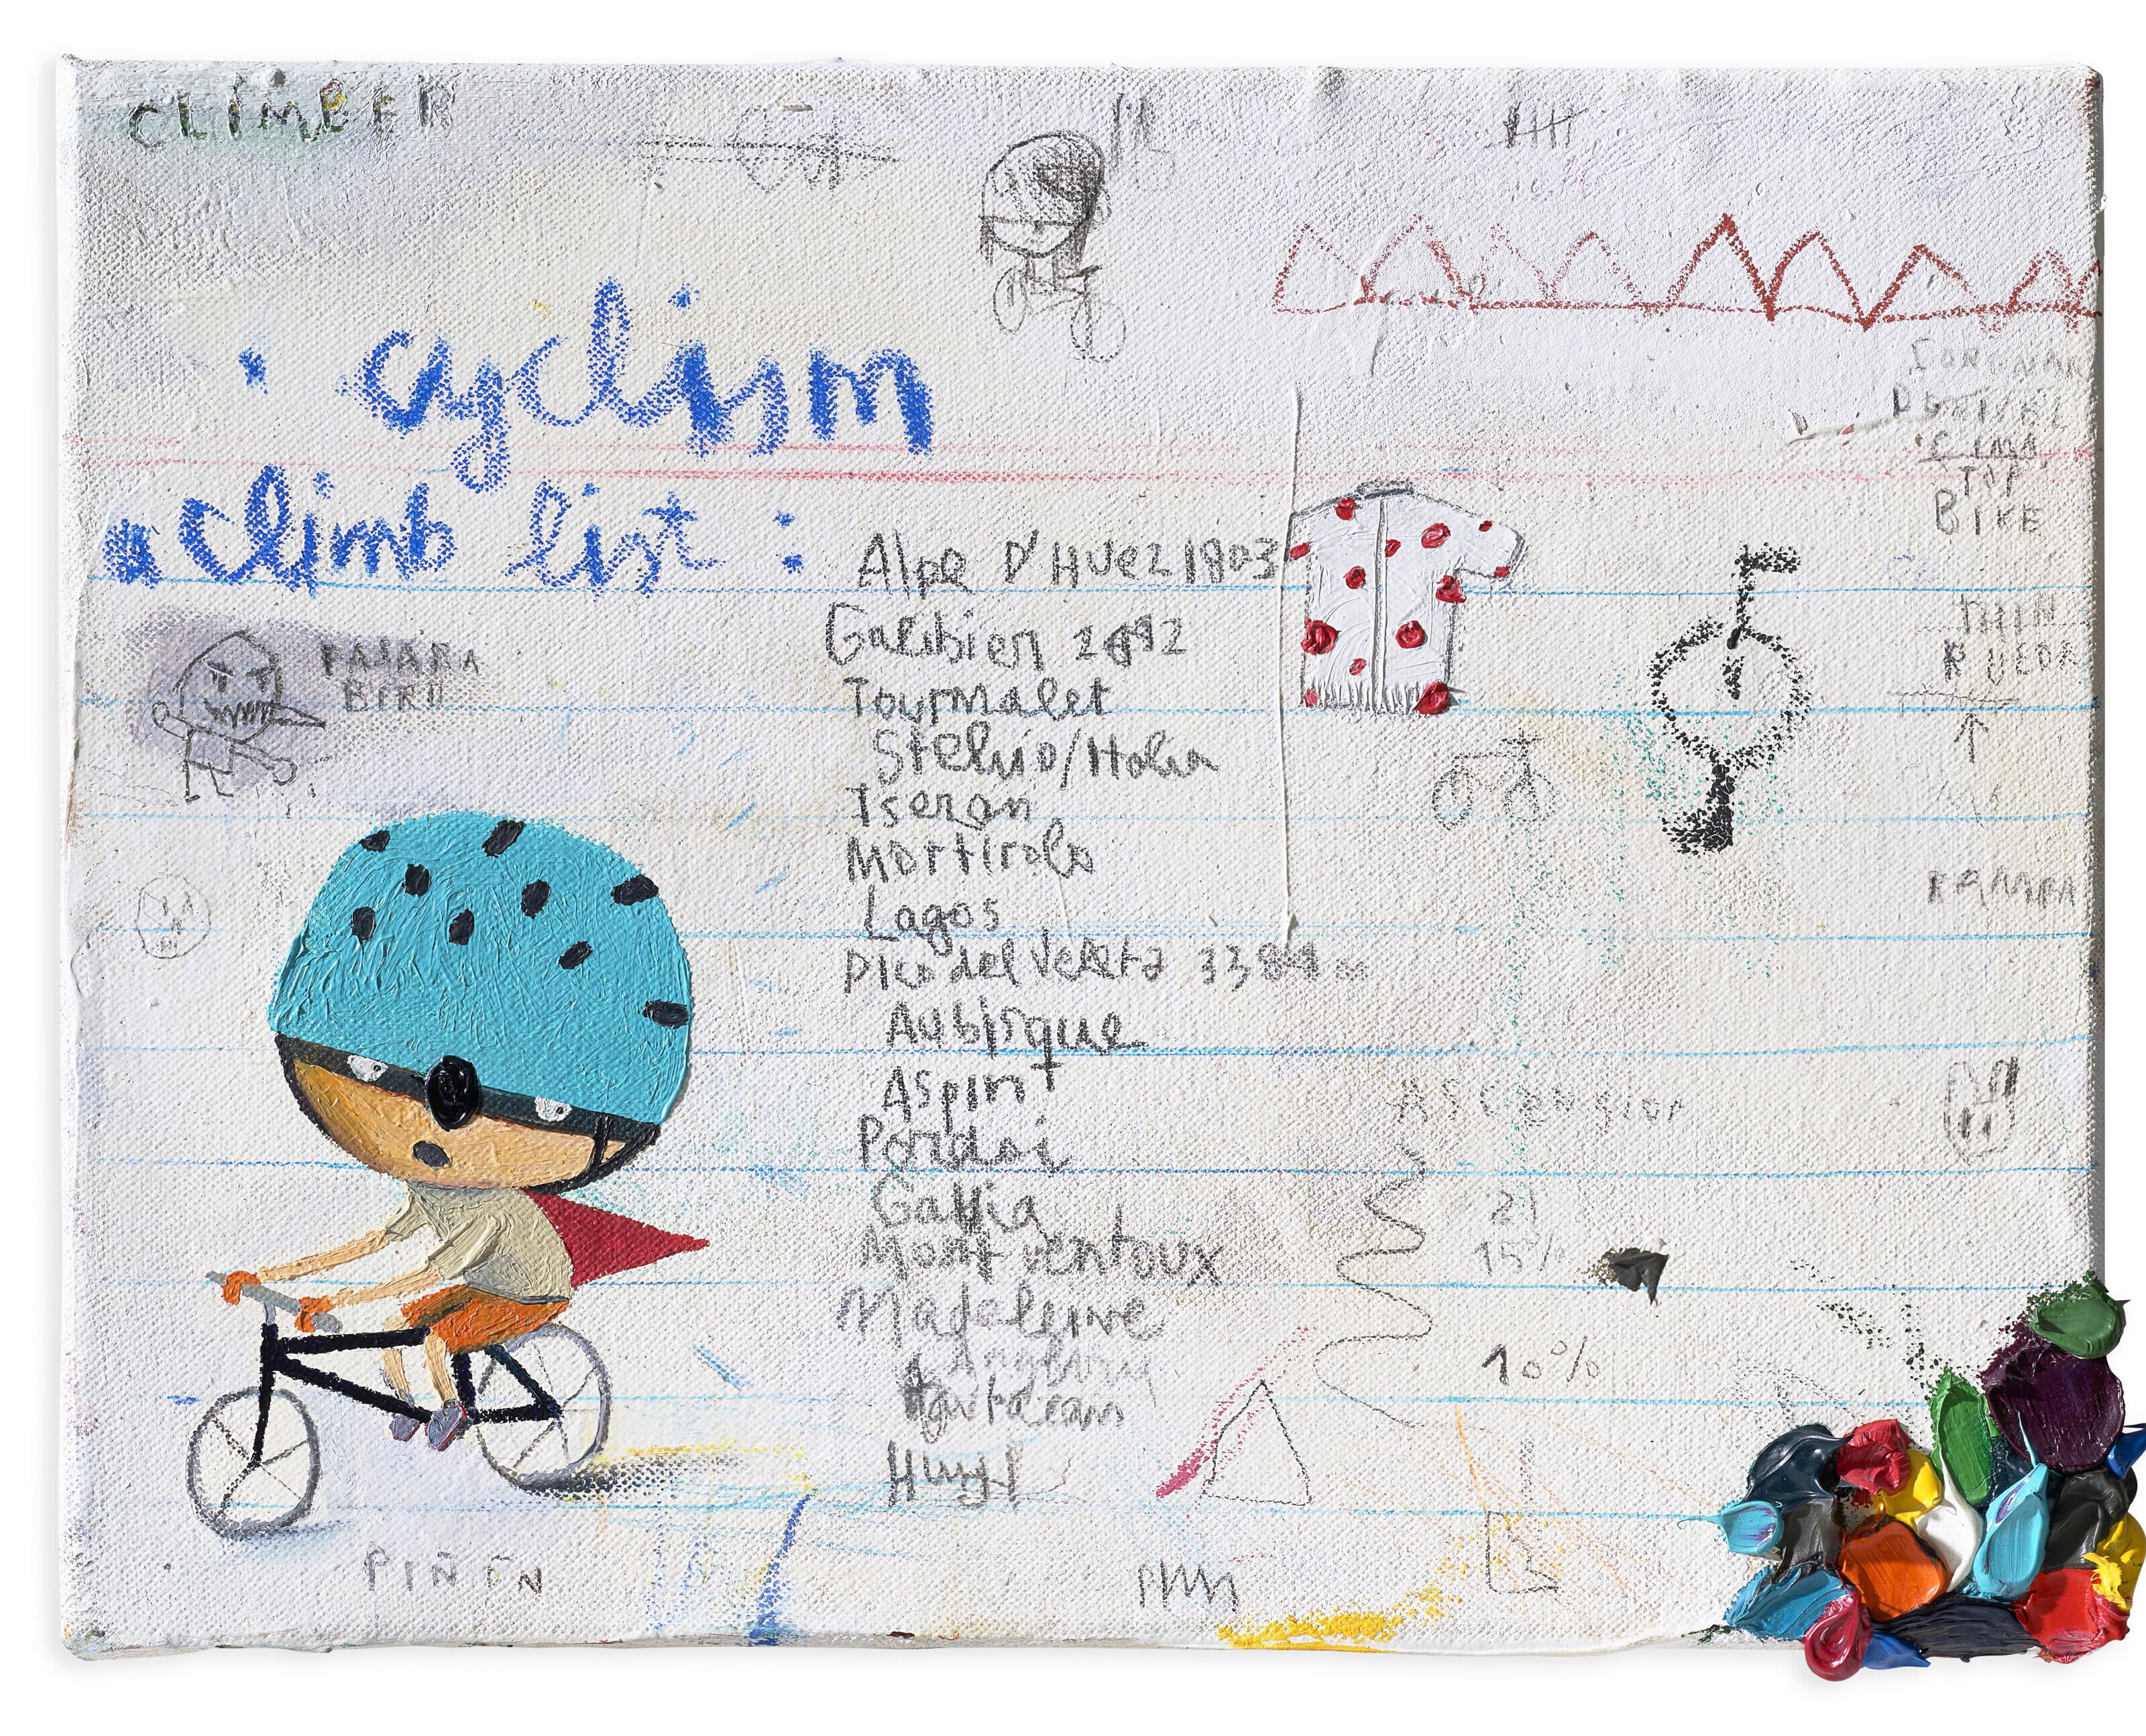 CLIMBER
cyclism
climb list :
Alpe D'HUEZ 1803
Galibier 2692
Tourmalet
Stelvio/Italia
Iseran
Mortirolo
Lagos
Pico del Veleta 3384 m
Aubisque
Aspin
Pordoi
Gavia
Mont Ventoux
Madeleine
Angliru
Hautacam
Huy
PAJARA
BIRD
PIÑÓN
CIMA
TOP
BIKE
THIN
RUEDA
PAJARA
ASCENSION
21
15%
10%